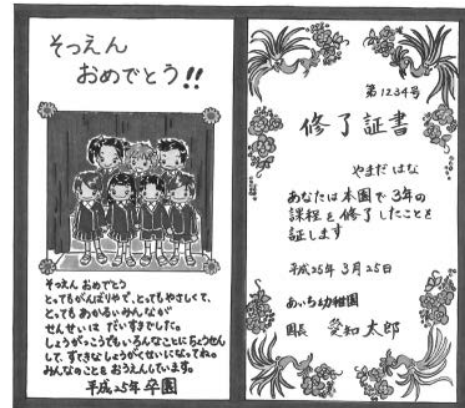 そつえん
おめでとう!!
そつえん おめでとう
とってもがんばりやで、とってもやさしくて、
とっても あかるいみんなが
せんせいは だいすきでした。
しょうがっこうでもいろんなことにちょうせん
して、すてきなしょうがくせいになってね。
みんなのことを おうえんしています。
平成25年 卒園
第1234号
修了証書
やまだ はな
あなたは本園で3年の
課程を修了したことを
証します
平成25年 3月25日
あいち幼稚園
園長 愛知太郎